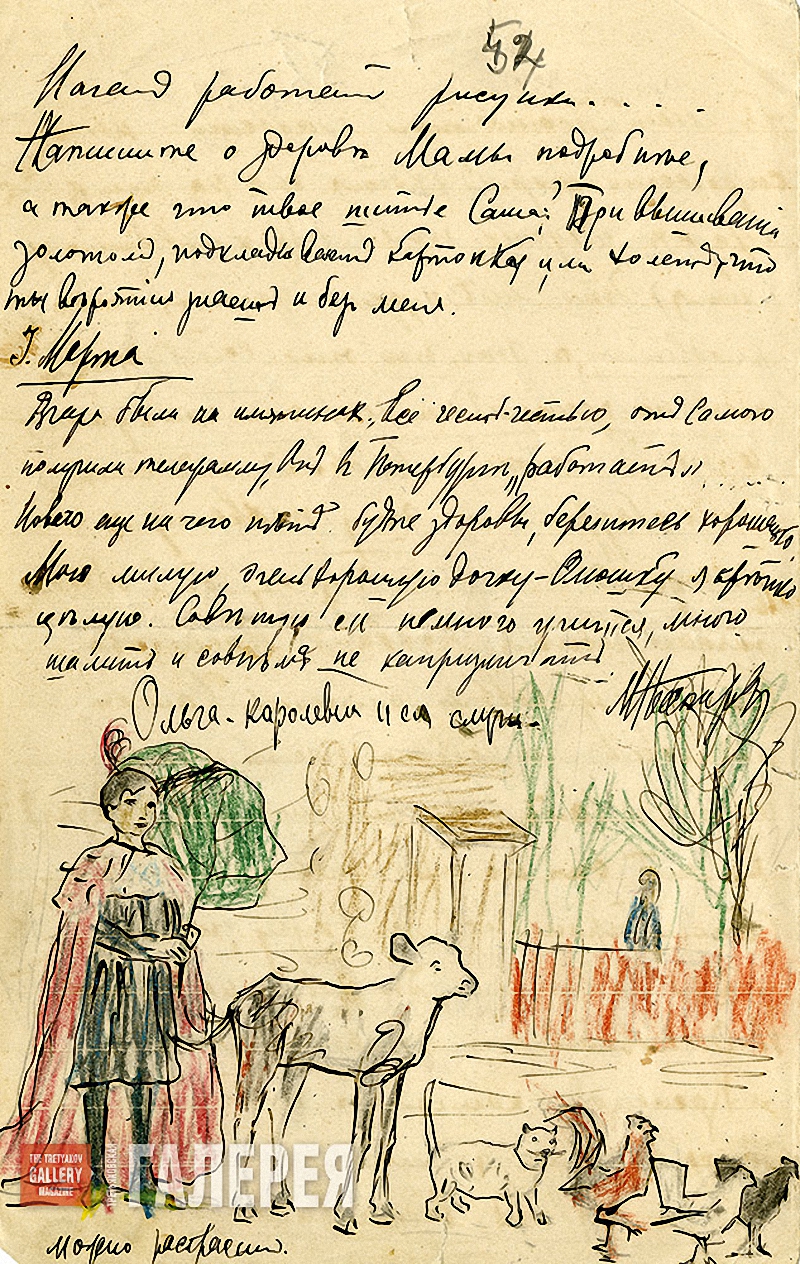 52
работает рисунки....
Напишите о здоровье Мамы подробнее,
а также что твое шитье Саша? При вышиваніи
золотом, подкладывают картонки или
ты вероятно знаешь и без меня.
3. Марта
Вчера были на именинах, Все честь-честью, от самого
получили телеграмму, он в Петербурге, "работает"......
Нового еще ничего нет. будте здоровы, берегитесь хорошенько
Мою милую, очень хорошую дочку-Олюшку я крепко
целую. Советую ей немного учится, много
шалить и совсем не капризничать.
М Нестеров
Ольга-королевна и ея слуги-
THE TRETYAKOV
GALLERY
MAGAZINE
ТРЕТЬЯКОВСКАЯ
ГАЛЕРЕЯ
можно раскрасить.